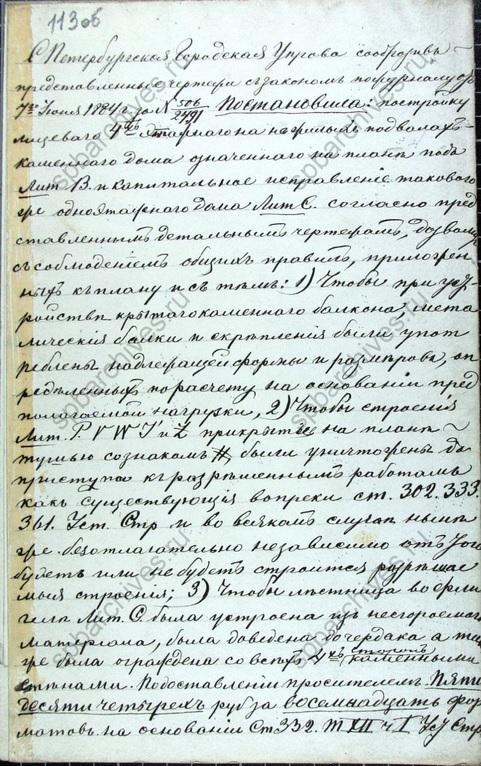 113 об
С Петербургская Городская Управа сообразивъ
представленные чертежи съ закономъ по журналу отъ
7го Iюня 1884 г. за № 506/2491 Постановила: постройку
лицеваго 4хъ этажнаго на жилыхъ подвалахъ
каменнаго дома означеннаго на планѣ подъ
Лит. В. и капитальное исправленіе таковаго
же одноэтажнаго дома Лит С. согласно пред
ставленнымъ детальнымъ чертежамъ, дозволить
съ соблюденіемъ общихъ правилъ, приложен
ныхъ къ плану и съ тѣмъ: 1) Чтобы при уст
ройствѣ крытаго каменнаго балкона, мета
лическія балки и скрѣпленія были упот
реблены надлежащей формы и размѣровъ, оп
редѣленныхъ по расчету на основаніи пред
полагаемой нагрузки, 2) Чтобы строенія
Лит. P. V W и Z прикрытые на планѣ
тушью со знакомъ # были уничтожены до
приступа къ разрѣшеннымъ работамъ
какъ существующія вопреки ст. 302. 333.
361. Уст. Стр и во всякомъ случаѣ нынѣ
же безотлагательно независимо отъ того
будетъ или не будетъ строится разрѣшае
мыя строенія; 3) Чтобы лѣстница во фли
гелѣ Лит. С. была устроена изъ несгораемаго
матеріала, была доведена до чердака а так
же была ограждена со всѣхъ 4хъ сторонъ каменными
стѣнами. По доставленіи просителемъ Пяти
десяти четырехъ руб за восемнадцать фор
матовъ на основаніи Ст 332. Т XII ч I Уст Стр
spbarchives.ru